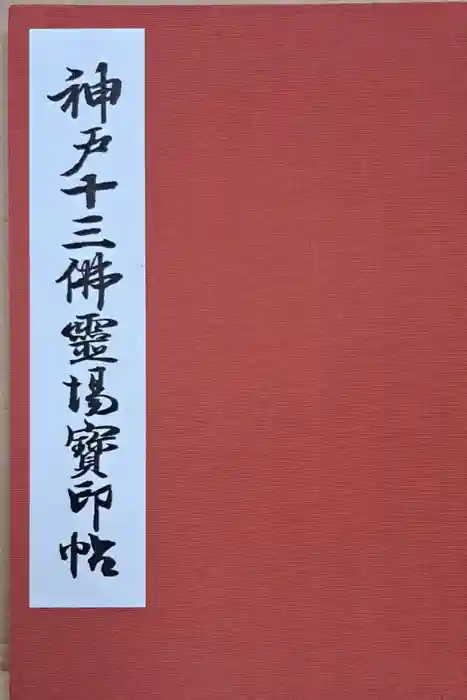 神戸十三佛霊場寳印帖